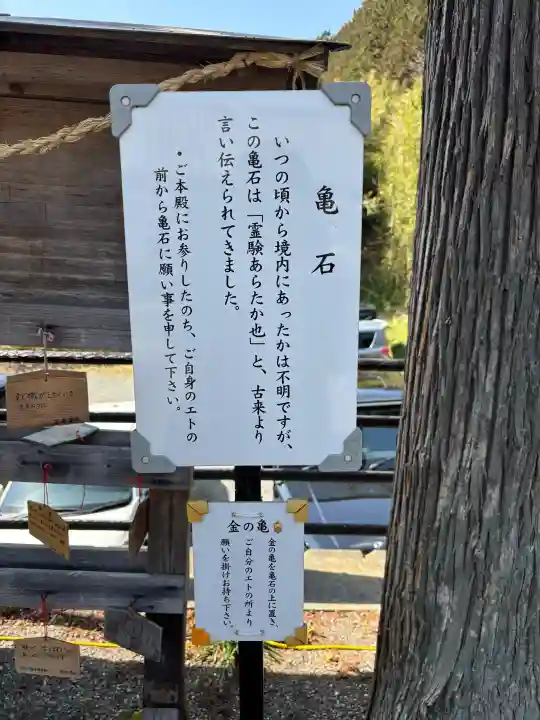 亀石
いつの頃から境内にあったかは不明ですが、
この亀石は「霊験あらたか也」と、古来より
言い伝えられてきました。
・ご本殿にお参りしたのち、ご自身のエトの
前から亀石に願い事を申して下さい。
金の亀
金の亀を亀石の上に置き、
ご自分のエトの所より
願いを掛けお持ち下さい。